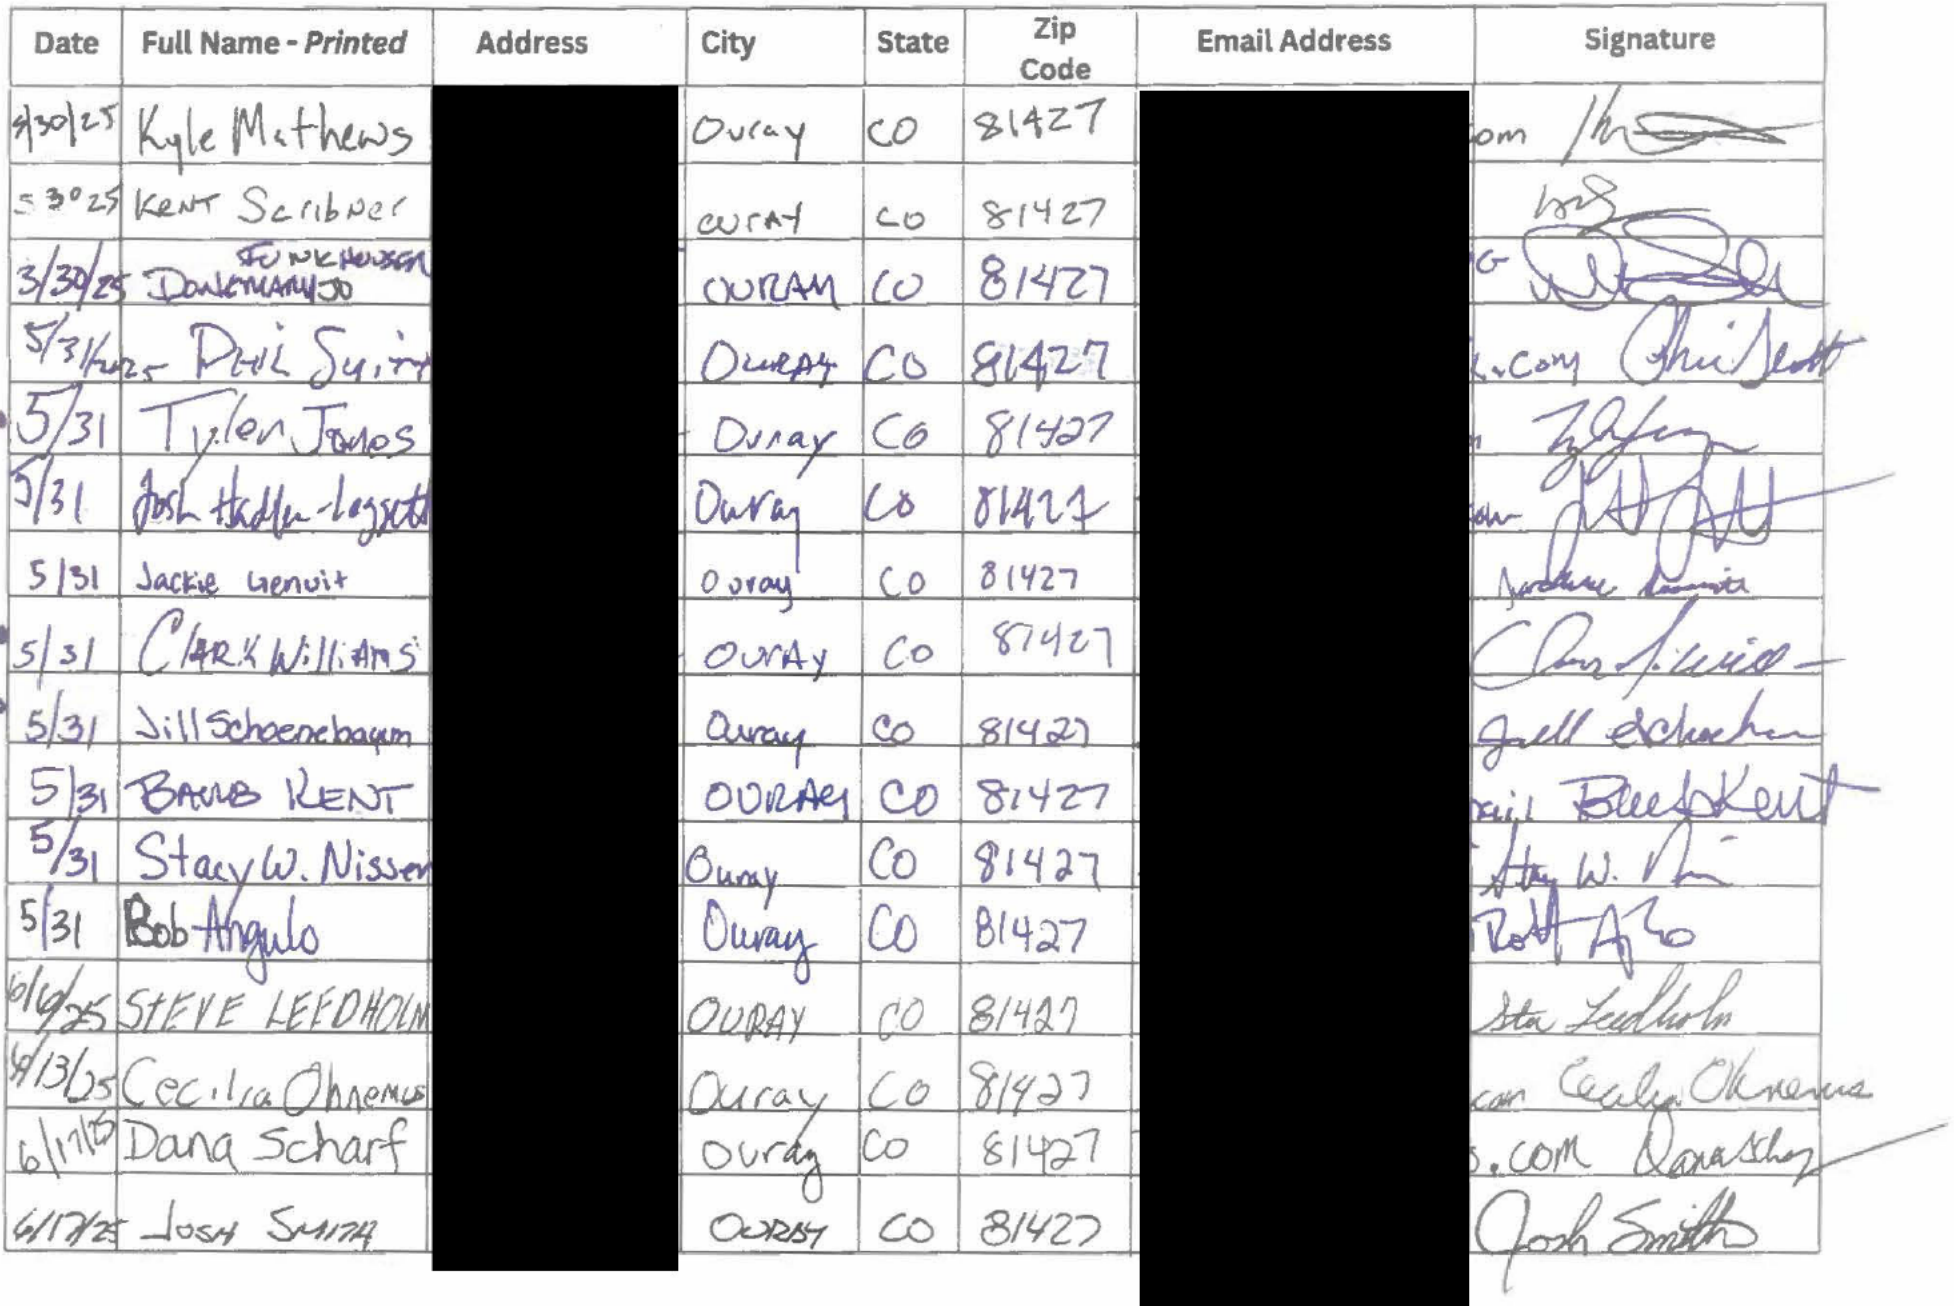 Date Full Name - Printed Address City State Zip Code Email Address Signature
5/30/25 Kyle Mathews Ouray CO 81427 om
5 30 25 Kent Scribner OURAY CO 81427
3/30/25 FUNKHOUSER OURAY CO 81427 G
5/31/2025 PHIL OURAY CO 81427 .com
5/31 Tyler Jones Ouray CO 81427
5/31 Josh Hadler-Leggett Ouray CO 81427
5/31 Jackie Genuit Ouray CO 81427
5/31 CLARK WilliAMS OurAy CO 81427
5/31 Jill Schoenebaum Ouray CO 81427
5/31 BARB KENT OURAY CO 81427 Kent
5/31 Stacy W. Nissen Ouray CO 81427 W.
5/31 Bob Angulo Ouray CO 81427
6/6/25 STEVE LEEDHOLM OURAY CO 81427 Leedholm
6/13/25 Cecilia Ohnemus Ouray CO 81427 com Cecilia Ohnemus
6/17/25 Dana Scharf Ouray CO 81427 .com
6/17/25 JOSH SMITH OURAY CO 81427 Josh Smith